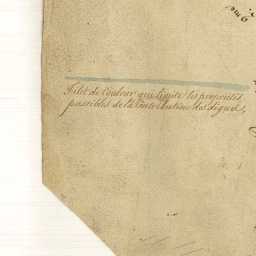 Filet de Couleur qui limite les propriétés
passibles de la Contribution des digues,